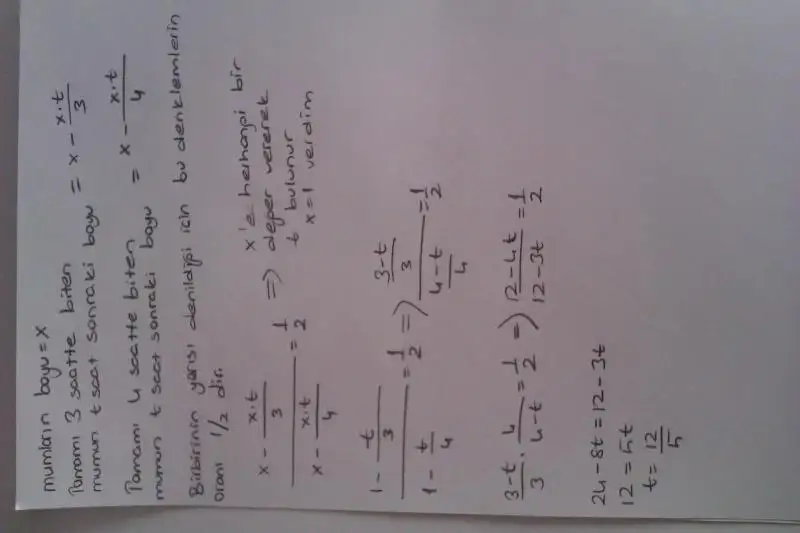 mumların boyu = x
Tamamı 3 saatte biten
mumun t saat sonraki boyu = x - x.t/3
Tamamı 4 saatte biten
mumun t saat sonraki boyu = x - x.t/4
Birbirinin yarısı denildiği için bu denklemlerin
oranı 1/2 dir.
(x - x.t/3)/(x - x.t/4) = 1/2 => x'e herhangi bir
değer vererek
t bulunur
x=1 verdim
(1 - t/3)/(1 - t/4) = 1/2 => ((3-t)/3)/((4-t)/4) = 1/2
(3-t)/3 . 4/(4-t) = 1/2 => (12-4t)/(12-3t) = 1/2
24-8t = 12-3t
12 = 5t
t = 12/5